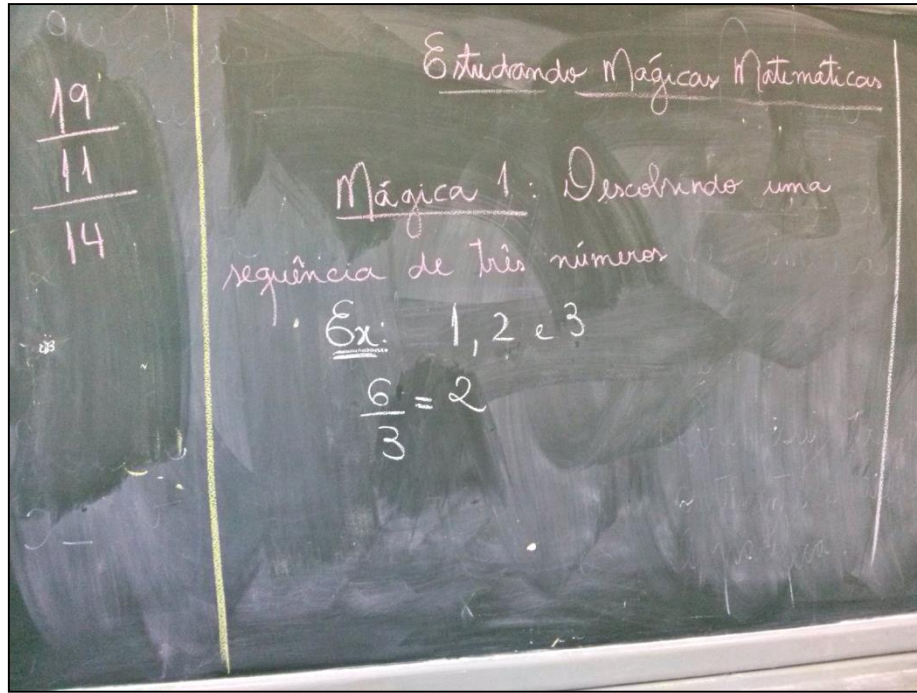 19
11
14
Estudando Mágicas Matemáticas
Mágica 1: Descobrindo uma
sequência de três números
Ex: 1, 2 e 3
6/3 = 2